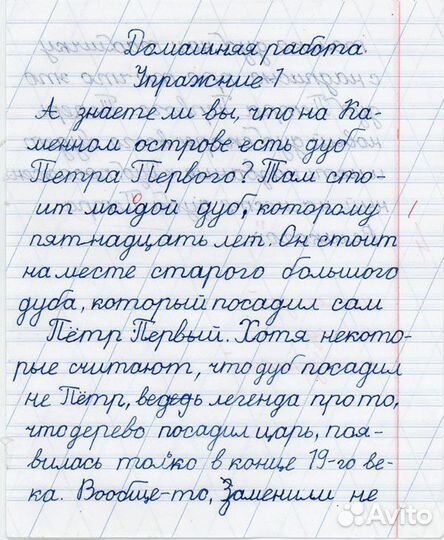 Домашняя работа.
Упражние 1
А знаете ли вы, что на Ка-
менном острове есть дуб
Петра Первого? Там сто-
ит молодой дуб, которому
пятнадцать лет. Он стоит
на месте старого большого
дуба, который посадил сам
Пётр Первый. Хотя некото-
рые считают, что дуб посадил
не Пётр, ведь легенда про то,
что дерево посадил царь, поя-
вилась только в конце 19-го ве-
ка. Вообще-то, Заменили не
Avito